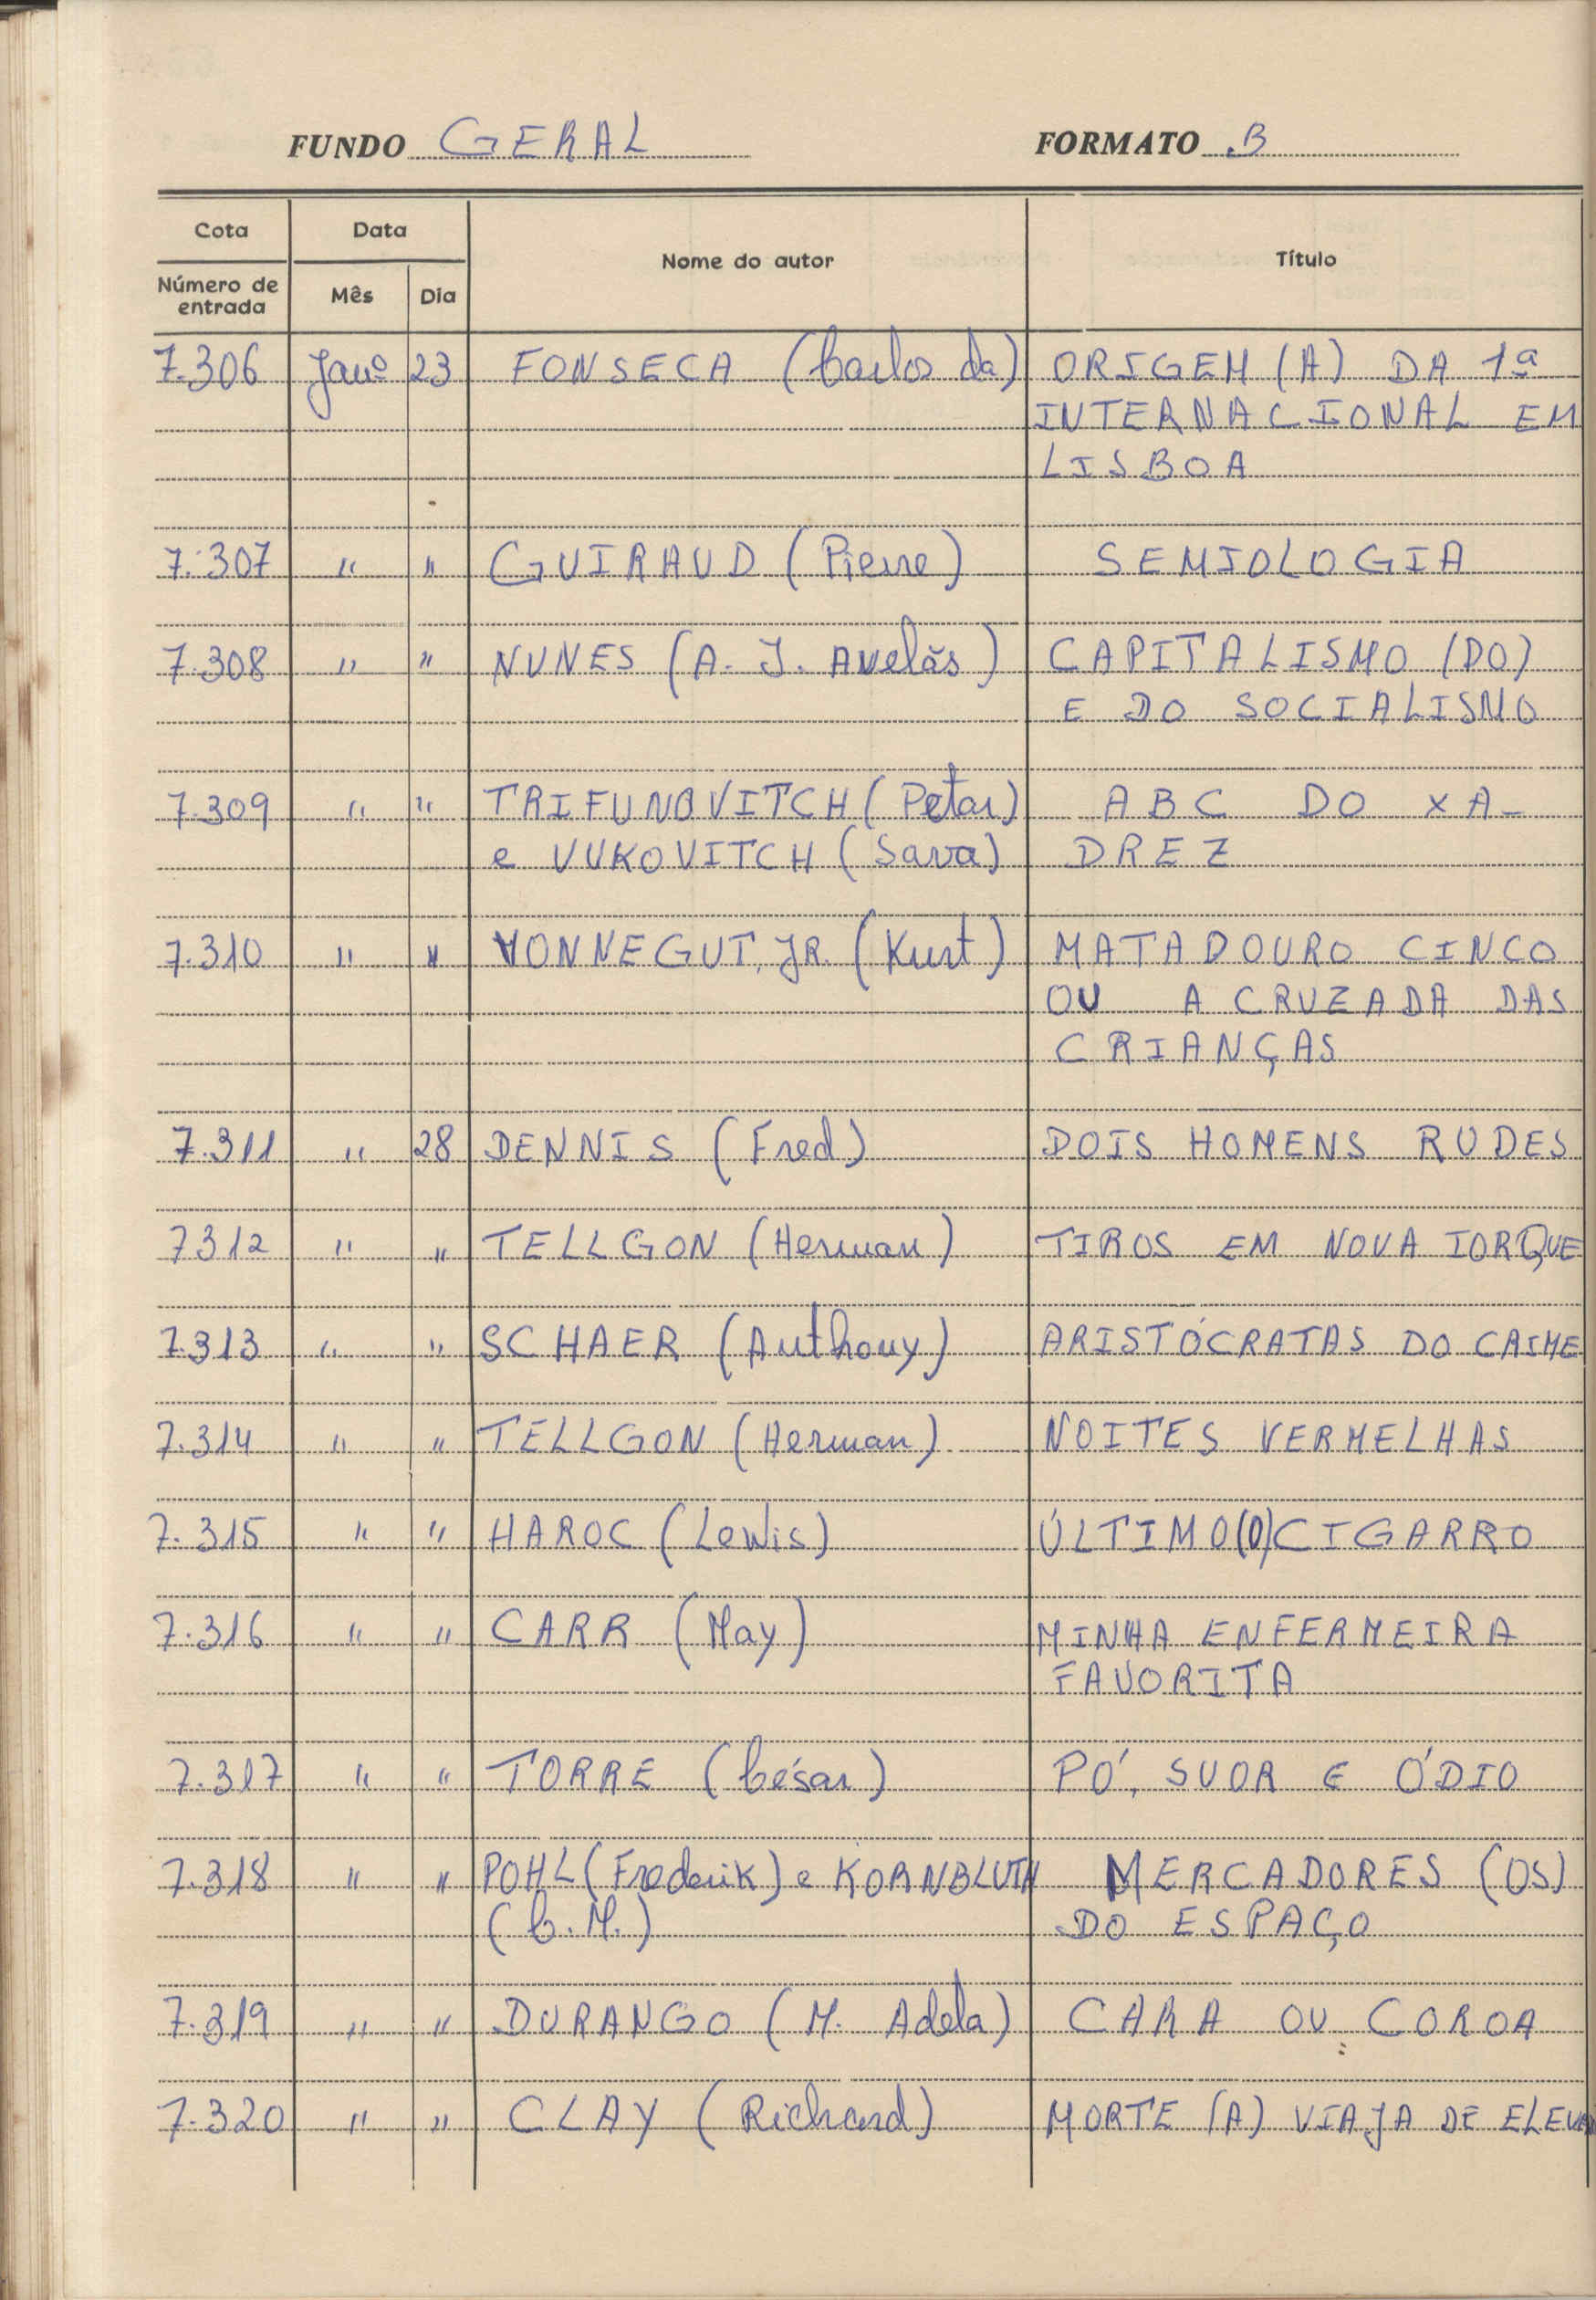 FUNDO GERAL FORMATO B
Cota Data Nome do autor Título
Número de entrada Mês Dia
7.306 Janº 23 FONSECA (Carlos da) ORIGEM (A) DA 1ª
INTERNACIONAL EM
LISBOA
7.307 " " GUIRAUD (Pierre) SEMIOLOGIA
7.308 " " NUNES (A. J. Avelãs) CAPITALISMO (DO)
E DO SOCIALISMO
7.309 " " TRIFUNOVITCH (Petar) ABC DO XA-
e VUKOVITCH (Sava) DREZ
7.310 " " VONNEGUT, JR. (Kurt) MATADOURO CINCO
OU A CRUZADA DAS
CRIANÇAS
7.311 " 28 DENNIS (Fred) DOIS HOMENS RUDES
7312 " " TELLGON (Herman) TIROS EM NOVA IORQUE
7313 " " SCHAER (Anthony) ARISTÓCRATAS DO CRIME
7.314 " " TELLGON (Herman) NOITES VERMELHAS
7.315 " " HAROC (Lewis) ÚLTIMO (O) CIGARRO
7.316 " " CARR (May) MINHA ENFERMEIRA
FAVORITA
7.317 " " TORRE (César) PÓ, SUOR E ÓDIO
7.318 " " POHL (Frederik) e KORNBLUTH MERCADORES (OS)
(C. M.) DO ESPAÇO
7.319 " " DURANGO (M. Adela) CARA OU COROA
7.320 " " CLAY (Richard) MORTE (A) VIAJA DE